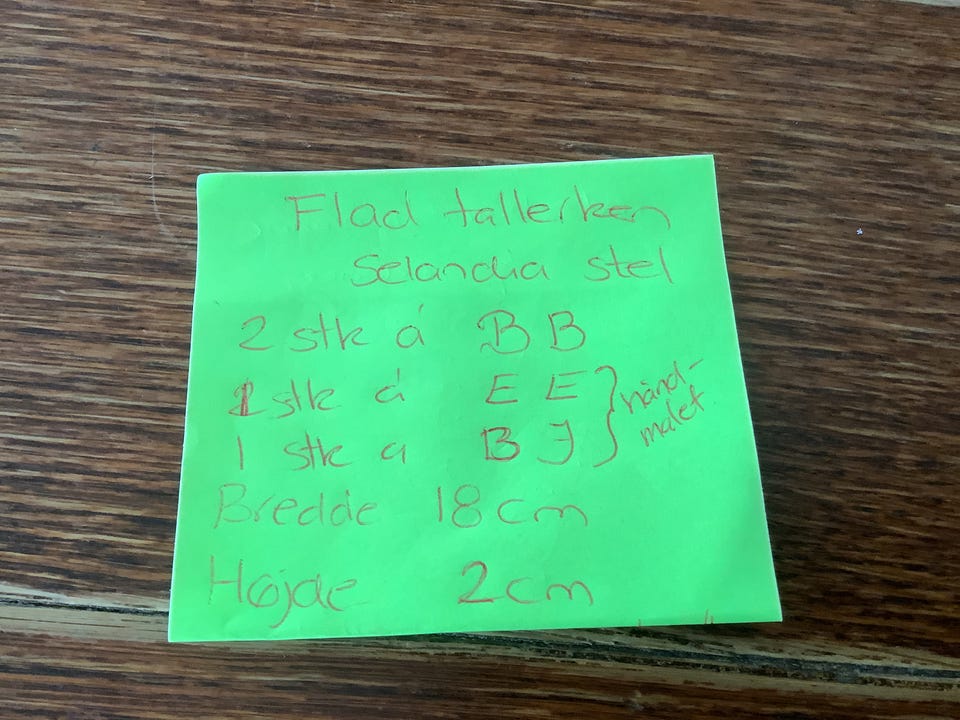 Flad tallerken
Selandia stel
2 stk á BB
1 stk á EE } hånd-
1 stk a BJ } malet
Bredde 18 cm
Højde 2 cm